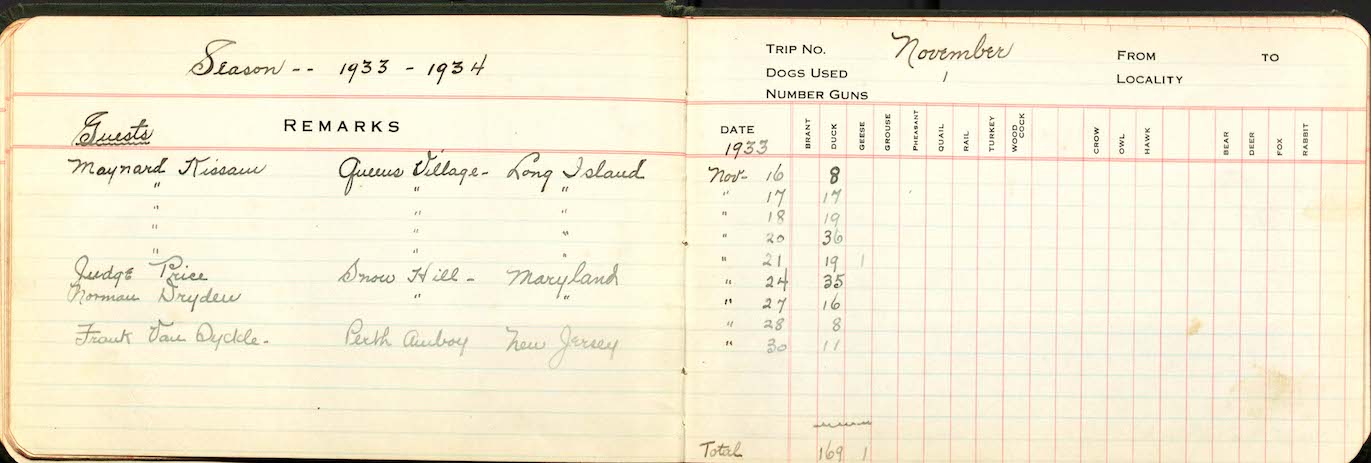 Season -- 1933 - 1934
Guests REMARKS
Maynard Kissam Queens Village - Long Island
" " "
" " "
" " "
" " "
Judge Price Snow Hill - Maryland
Norman Dryden " "
Frank Van Dyckle - Perth Amboy New Jersey
TRIP NO. November FROM TO
DOGS USED 1 LOCALITY
NUMBER GUNS
DATE BRANT DUCK GEESE GROUSE PHEASANT QUAIL RAIL TURKEY WOOD COCK CROW OWL HAWK BEAR DEER FOX RABBIT
1933
Nov- 16 8
" 17 17
" 18 19
" 20 36
" 21 19 1
" 24 35
" 27 16
" 28 8
" 30 11
Total 169 1